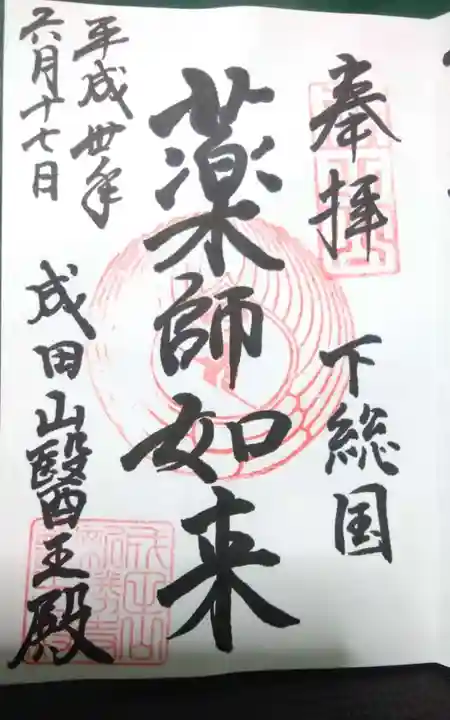 奉拝
下総国
薬師如来
平成卅年
六月十七日
成田山醫王殿